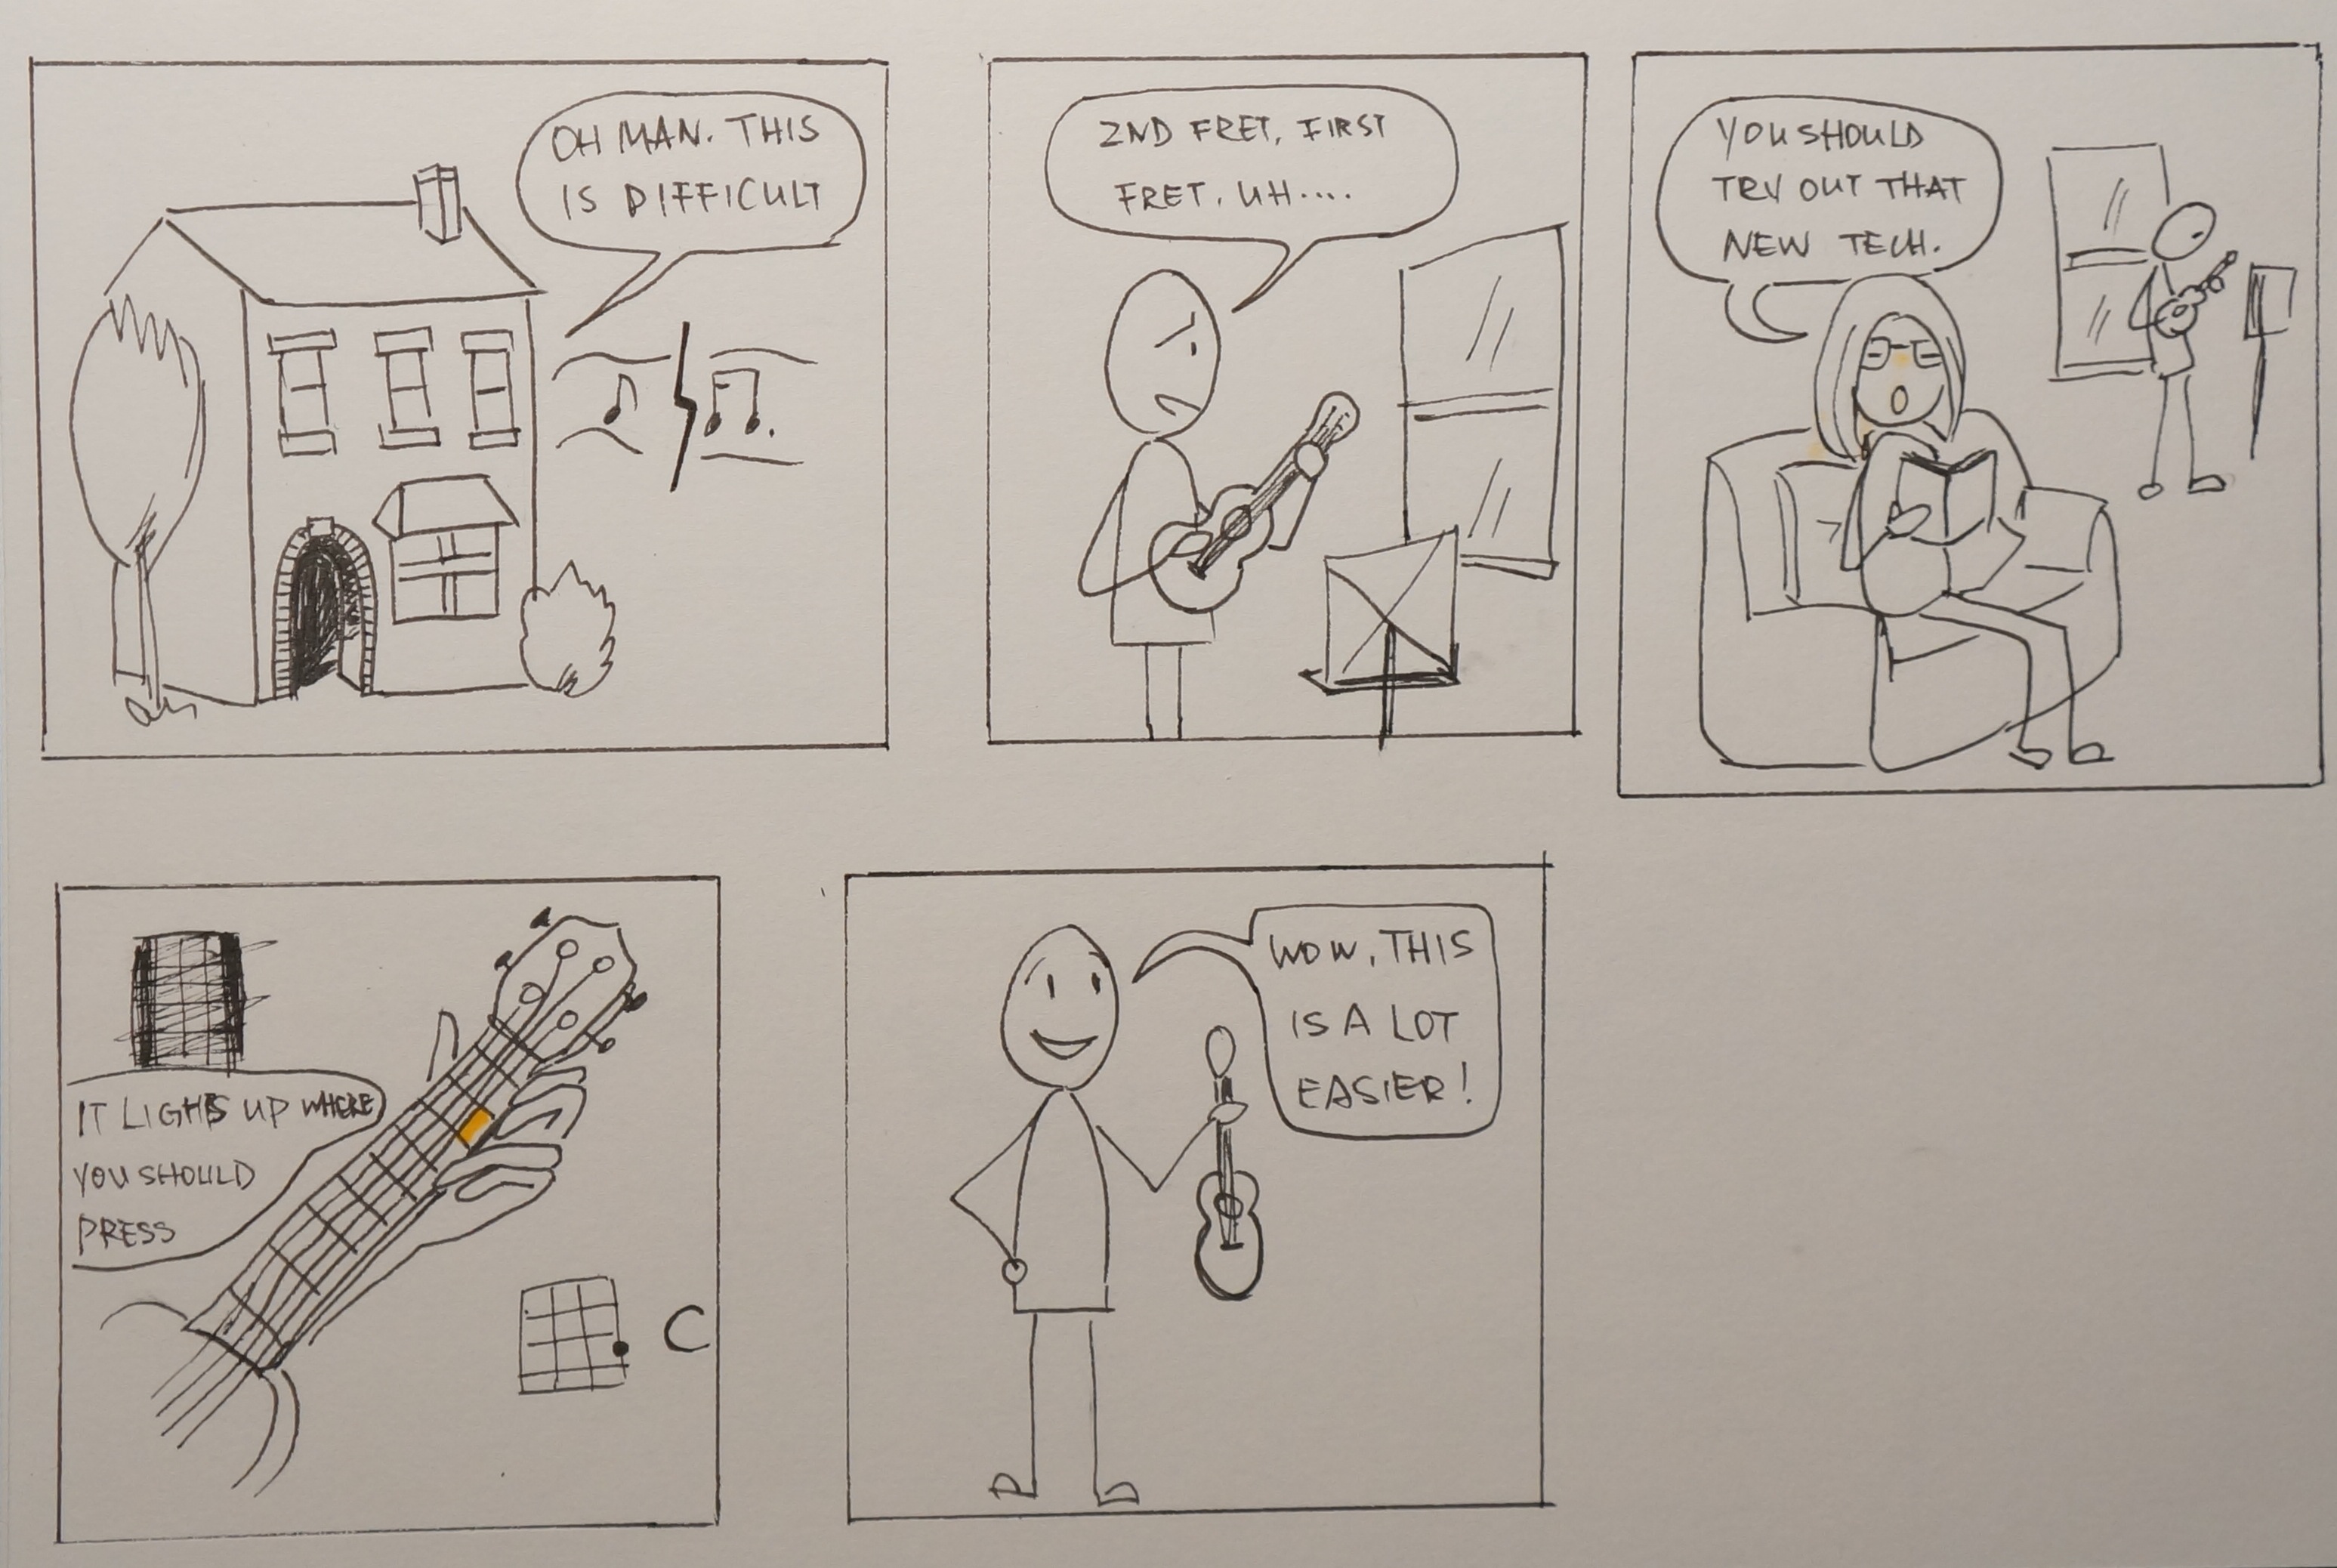 OH MAN. THIS
IS DIFFICULT
2ND FRET, FIRST
FRET, UH....
YOU SHOULD
TRY OUT THAT
NEW TECH.
IT LIGHTS UP WHERE
YOU SHOULD
PRESS
C
WOW, THIS
IS A LOT
EASIER!